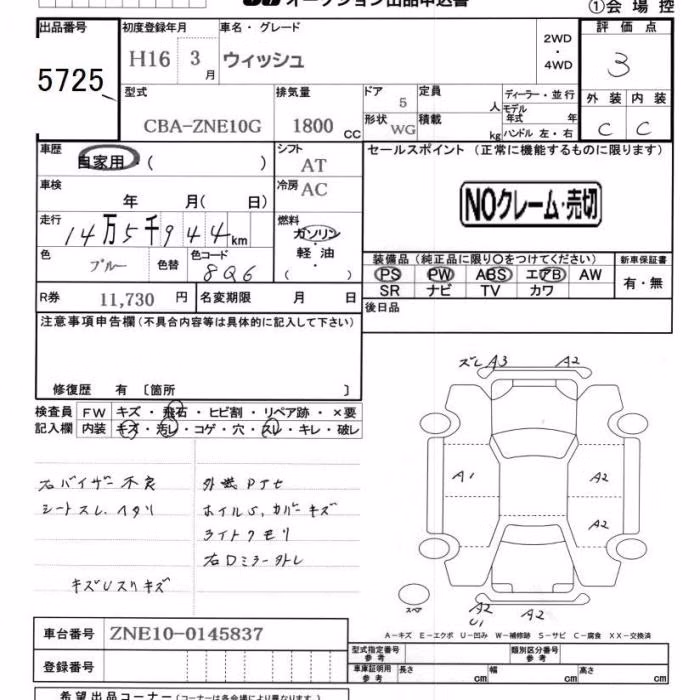 オークション出品申込書
①会場控
出品番号 5725
初度登録年月 H16 3月
車名・グレード ウィッシュ
2WD・4WD
評価点 3
型式 CBA-ZNE10G
排気量 1800 CC
ドア 5
定員 人
ディーラー・並行
モデル年式 年
形状 WG
積載 kg
ハンドル 左・右
外装 C 内装 C
車歴 自家用・( )
シフト AT
セールスポイント (正常に機能するものに限ります)
NOクレーム・売切
車検 年 月( 日)
冷房 AC
走行 14万5千944km
燃料 ガソリン・軽油・( )
色 ブルー 色替 色コード 8Q6
装備品 (純正品に限り○をつけてください)
新車保証書 有・無
PS PW ABS エアB AW
SR ナビ TV カワ
R券 11,730 円 名変期限 月 日
後日品
注意事項申告欄(不具合内容等は具体的に記入して下さい)
修復歴 有 〔箇所 〕
検査員 FW キズ・飛石・ヒビ割・リペア跡・×要
記入欄 内装 キズ・汚レ・コゲ・穴・スレ・キレ・破レ
右バイザー不良
シートスレ、ヘタリ
キズUスリキズ
ホイルS,カバーキズ
ライトクモリ
右Dミラー
ズレA3 A2
A1 A2
A2
スペア A2 U1 A2
A-キズ E-エクボ U-凹み W-補修跡 S-サビ C-腐食 XX-交換済
車台番号 ZNE10-0145837
型式指定番号 参考
類別区分番号 参考
登録番号
車庫証明用 参考 長さ cm 幅 cm 高さ cm
希望出品コーナー(コーナーは各会場により異なります。)